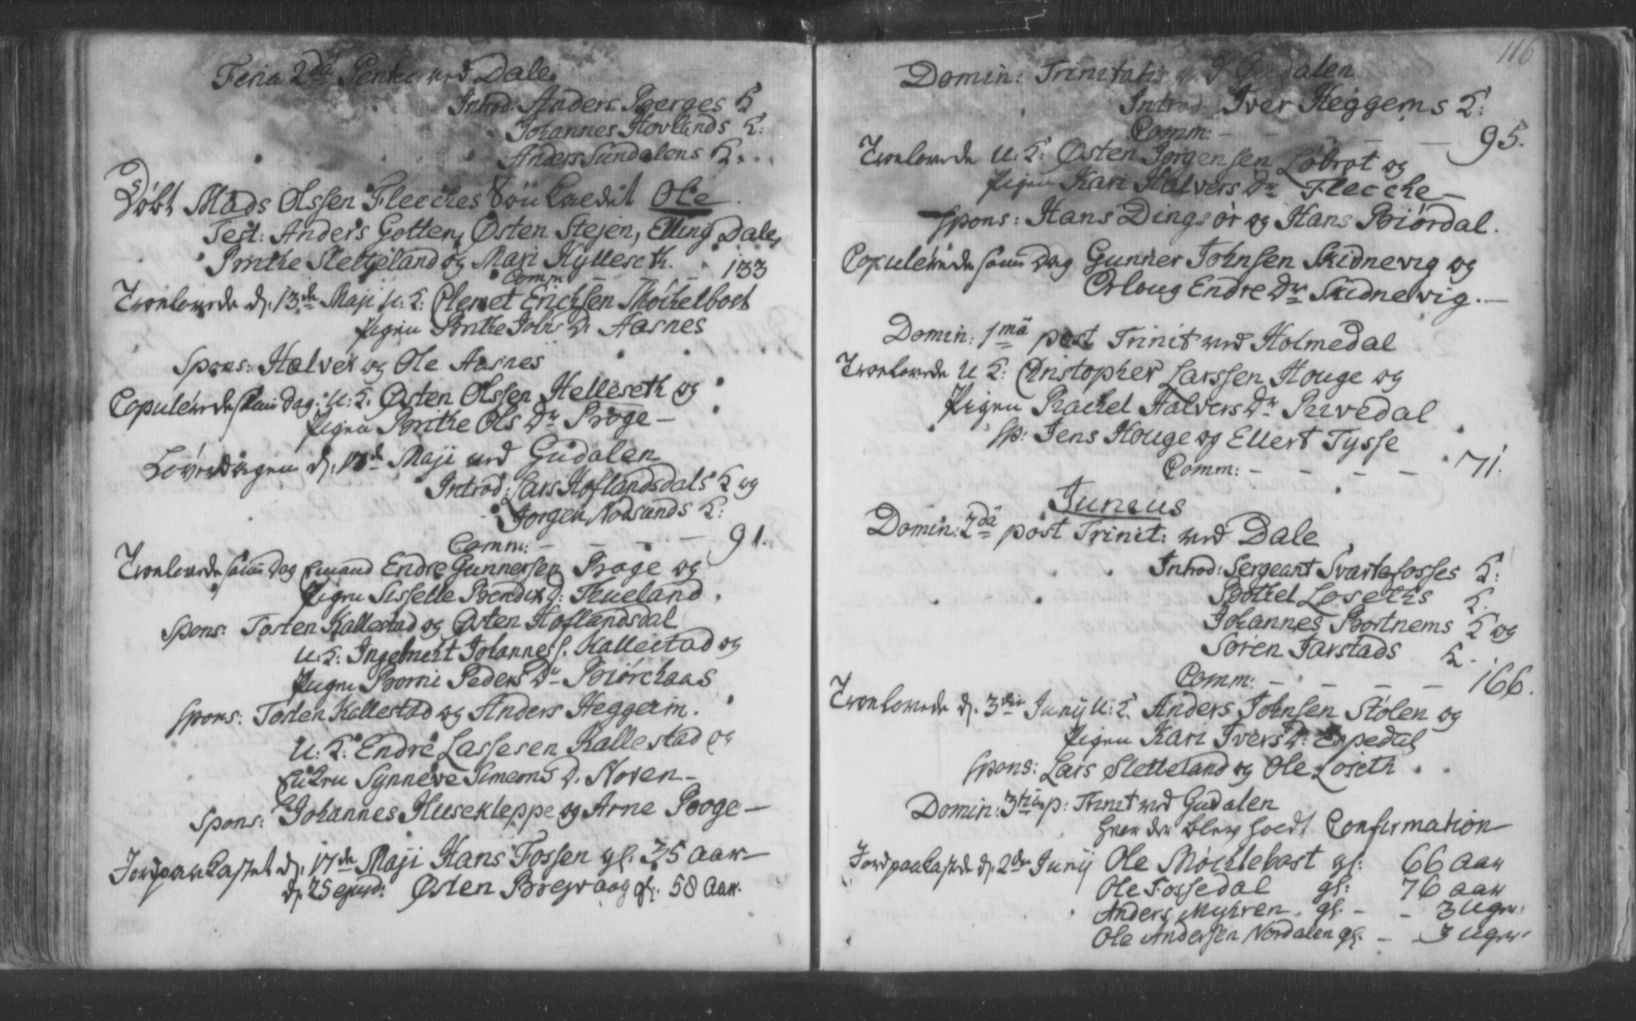 Feria 2da Pentec: ved Dale
Introd: Anders Berges K:
Johannes Hovlands K:
Anders Sundalens K:
Døbt Mads Olssen Flecches kaldet Ole
Test: Anders Gotten, Østen Stejen, Elling Dale,
Brithe Sletteland og Mari Hylleseth.
Comm: - - - 133
Troelovede d. 13de Maji U: K: Clemet Erichsen Møchelbost
Pigen Brithe Johns D: Aasnes
Spons: Halver og Ole Aasnes
Copulerede samme Dag: U: K: Østen Olssen Helleseth og
Pigen Brithe Ols Dr Boge -
Løverdagen d. Maji ved Gudalen
Introd: Lars Hoflandsdals K og
Jorgen Nodsunds K:
Comm: - - - - 91.
Troelovede samme Dag Endre Gunnersen Boge og
Pigen Sisselle Bendix D: Tueland.
Spons: Tosten Kallestad og Østen Hoflandsdal
U: K: Ingebricht Johannes S. Kallestad og
Pigen Borni Peders Dr Biørchaas
Spons: Tosten Kallestad og Anders Heggeim.
U: K: Endre Lassesen Kallestad og
Enken Synneve Simens D. Noren -
Spons: Johannes Husekleppe og Arne Booge -
Jordpaakastet d. 17de Maji Hans Fossen gl: 75 aar
d. 25 ejusd: Østen Bregvaag gl. 58 Aar.
116
Domin: Trinitatis v. Gudalen
Introd: Iver Heggems K:
Comm: - - - 95.
Troelovede U: K: Østen Jørgensen Løbrot og
Pigen Kari Halvers Dr Flecche -
Spons: Hans Dingsør og Hans Biørdal.
Copulerede samme Dag Gunner Johnsen Skidnevig og
Orloug Endre Dr Skidnevig. -
Domin: 1ma post Trinit ved Holmedal
Troelovede U K: Christopher Larssen Houge og
Pigen Rachel Halvers Dr Rivedal
Sp: Jens Houge og Ellert Tysse
Comm: - - - - 71.
Junius
Domin: 2da post Trinit: ved Dale
Introd: Sergeant Svartefosses K:
Bottel Loseths K.
Johannes Bortnems K og
Soren Jarstads K.
Comm: - - - - 166.
Troelovede d. 3die Junij U: K. Anders Johnsen Stølen og
Pigen Kari Ivers D: Espedal
Spons: Lars Sletteland og Ole Loseth.
Domin: 3tia p: Trinit ved Gudalen
hvor der blev holdt Confirmation
Jordpaakastede d. 2den Junij Ole Møchlebost gl: 66 Aar
Ole Fossedal gl: 76 aar
Anders Myhren gl. - - 3 Uger
Ole Andersen Nordalen gl. - - 3 Uger